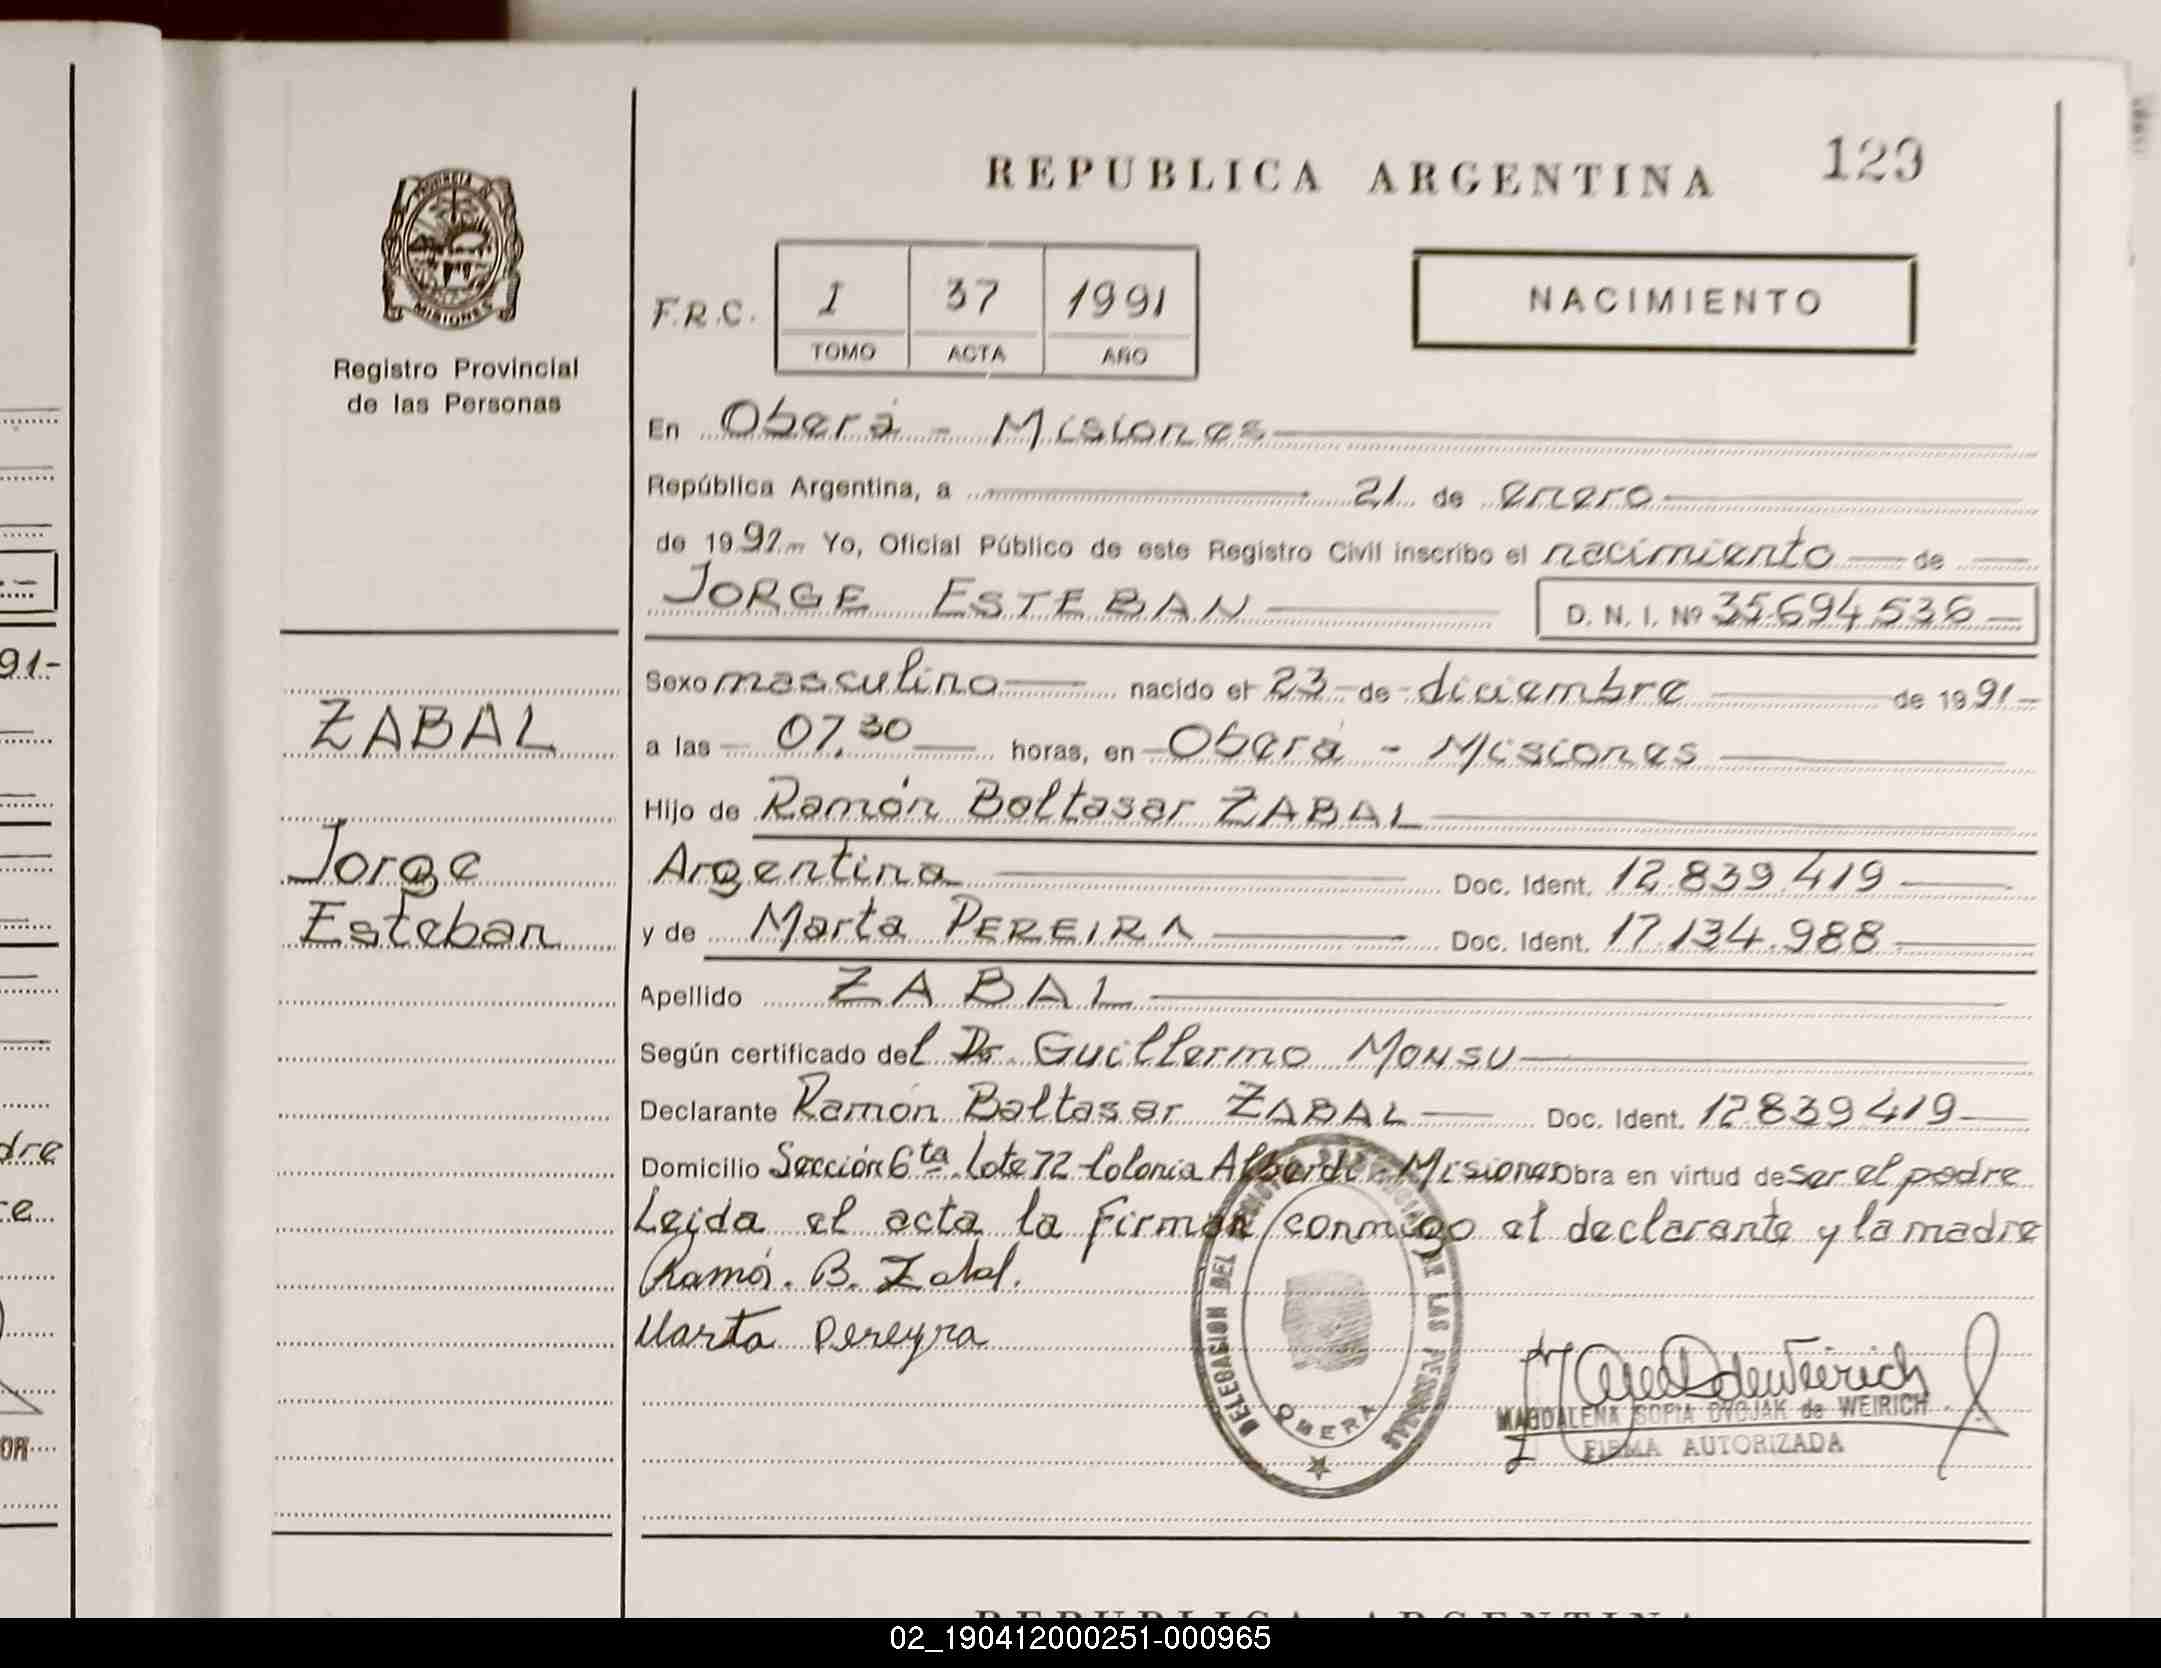 REPUBLICA ARGENTINA
123
PROVINCIA DE
MISIONES
Registro Provincial
de las Personas
F.R.C. I 37 1991
TOMO ACTA AÑO
NACIMIENTO
En Oberá - Misiones
República Argentina, a 21 de enero
de 1992 Yo, Oficial Público de este Registro Civil inscribo el nacimiento de
JORGE ESTEBAN D. N. I. Nº 35.694.536
Sexo masculino nacido el 23 de diciembre de 1991-
a las 07.30 horas, en Oberá - Misiones
Hijo de Ramón Baltasar ZABAL
Argentina Doc. Ident. 12.839.419
y de Marta PEREIRA Doc. Ident. 17.134.988
Apellido ZABAL
Según certificado del Dr. Guillermo Monsu
Declarante Ramón Baltasar ZABAL Doc. Ident. 12.839.419
Domicilio Sección 6ta. Lote 72 Colonia Alberdi - Misiones Obra en virtud de ser el padre
Leida el acta la firman conmigo el declarante y la madre
Ramón. B. Zabal.
Marta Pereyra
ZABAL
Jorge
Esteban
DELEGACION DEL REGISTRO PROVINCIAL DE LAS PERSONAS
OBERA
MAGDALENA SOFIA DVOJAK de WEIRICH
FIRMA AUTORIZADA
91-
dre
re
OR
REPUBLICA ARGENTINA
02_190412000251-000965